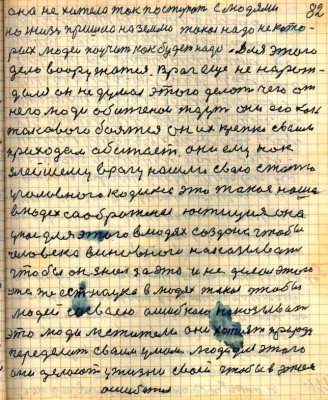 82
она не хитела так поступат с людями
но жизн пришла на землю такая надо некото-
рых людей поучит как будет надо. Для этого
дело вооружатся. Враг еще не нарож-
дался он не думал этого делат чего от
него люди обиженой ждут они его как
такового боятся он их крепко своим
приходам абижает, они ему как
злейшему врагу нашли свою статю
уголовного кодекса это такая наша
в людях саображеная юстиция она
для этого в людях создана чтобы
человека виновного наказыват
чтобы он знал за это и не делал этого
эта же ест наука в людях такая чтобы
людей за свою ошибкаю наказыват
это люди мстители они хотят природу
переделит своим умом. Люди для этого
они делают у жизни своей чтобы в этом
ошибатся